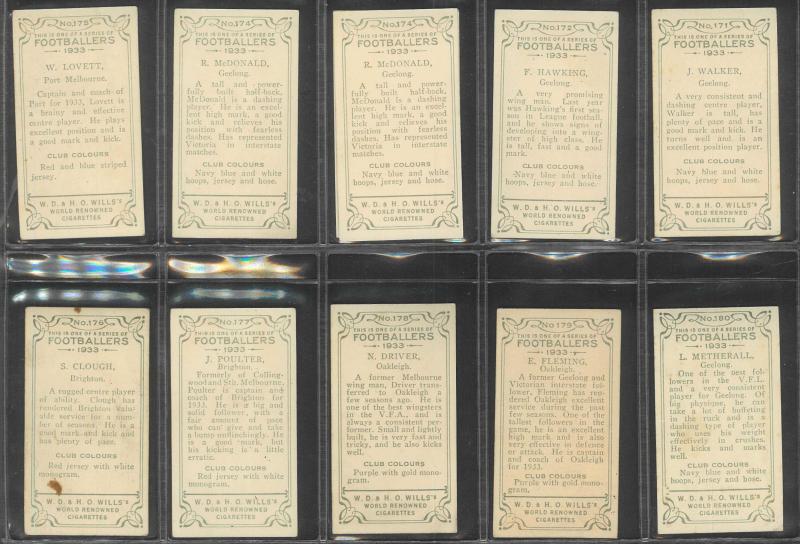 No. 175
THIS IS ONE OF A SERIES OF
FOOTBALLERS
1933
W. LOVETT,
Port Melbourne.
Captain and coach of
Port for 1933, Lovett is
a brainy and effective
centre player. He plays
excellent position and is
a good mark and kick.
CLUB COLOURS
Red and blue striped
jersey.
W. D. & H. O. WILLS's
WORLD RENOWNED
CIGARETTES
No. 174
THIS IS ONE OF A SERIES OF
FOOTBALLERS
1933
R. McDONALD,
Geelong.
A tall and power-
fully built half-back,
McDonald is a dashing
player. He is an excel-
lent high mark, a good
kick and relieves his
position with fearless
dashes. Has represented
Victoria in interstate
matches.
CLUB COLOURS
Navy blue and white
hoops, jersey and hose.
W. D. & H. O. WILLS's
WORLD RENOWNED
CIGARETTES
No. 174
THIS IS ONE OF A SERIES OF
FOOTBALLERS
1933
R. McDONALD,
Geelong.
A tall and power-
fully built half-back,
McDonald is a dashing
player. He is an excel-
lent high mark, a good
kick and relieves his
position with fearless
dashes. Has represented
Victoria in interstate
matches.
CLUB COLOURS
Navy blue and white
hoops, jersey and hose.
W. D. & H. O. WILLS's
WORLD RENOWNED
CIGARETTES
No. 172
THIS IS ONE OF A SERIES OF
FOOTBALLERS
1933
F. HAWKING,
Geelong.
A very promising
wing man. Last year
was Hawking's first seas-
on in League football,
and he shows signs of
developing into a wing-
ster of high class. He
is tall, fast and a good
mark.
CLUB COLOURS
Navy blue and white
hoops, jersey and hose.
W. D. & H. O. WILLS's
WORLD RENOWNED
CIGARETTES
No. 171
THIS IS ONE OF A SERIES OF
FOOTBALLERS
1933
J. WALKER,
Geelong.
A very consistent and
dashing centre player,
Walker is tall, has
plenty of pace and is a
good mark and kick. He
turns well and is an
excellent position player.
CLUB COLOURS
Navy blue and white
hoops, jersey and hose.
W. D. & H. O. WILLS's
WORLD RENOWNED
CIGARETTES
No. 176
THIS IS ONE OF A SERIES OF
FOOTBALLERS
1933
S. CLOUGH,
Brighton.
A rugged centre player
of ability, Clough has
rendered Brighton valu-
able service for a num-
ber of seasons. He is a
good mark and kick and
has plenty of pace.
CLUB COLOURS
Red jersey with white
monogram.
W. D. & H. O. WILLS's
WORLD RENOWNED
CIGARETTES
No. 177
THIS IS ONE OF A SERIES OF
FOOTBALLERS
1933
J. POULTER,
Brighton.
Formerly of Colling-
wood and Sth. Melbourne,
Poulter is captain and
coach of Brighton for
1933. He is a big and
solid follower, with a
fair amount of pace
who can give and take
a bump unflinchingly. He
is a good mark, but
his kicking is a little
erratic.
CLUB COLOURS
Red jersey with white
monogram.
W. D. & H. O. WILLS's
WORLD RENOWNED
CIGARETTES
No. 178
THIS IS ONE OF A SERIES OF
FOOTBALLERS
1933
N. DRIVER,
Oakleigh.
A former Melbourne
wing man, Driver trans-
ferred to Oakleigh a
few seasons ago. He is
one of the best wingsters
in the V.F.A., and is
always a consistent per-
former. Small and lightly
built, he is very fast and
tricky, and he also kicks
well.
CLUB COLOURS
Purple with gold mono-
gram.
W. D. & H. O. WILLS's
WORLD RENOWNED
CIGARETTES
No 179
THIS IS ONE OF A SERIES OF
FOOTBALLERS
1933
E. FLEMING,
Oakleigh.
A former Geelong and
Victorian interstate fol-
lower, Fleming has ren-
dered Oakleigh excellent
service during the past
few seasons. One of the
tallest followers in the
game, he is an excellent
high mark and is also
very effective in defence
or attack. He is captain
and coach of Oakleigh
for 1933.
CLUB COLOURS
Purple with gold mono-
gram.
W. D. & H. O. WILLS's
WORLD RENOWNED
CIGARETTES
No. 180
THIS IS ONE OF A SERIES OF
FOOTBALLERS
1933
L. METHERALL,
Geelong.
One of the best fol-
lowers in the V.F.L.
and a very consistent
player for Geelong. Of
big physique, he can
take a lot of buffeting
in the ruck and is a
dashing type of player
who uses his weight
effectively in crushes.
He kicks and marks
well.
CLUB COLOURS
Navy blue and white
hoops, jersey and hose.
W. D. & H. O. WILLS's
WORLD RENOWNED
CIGARETTES